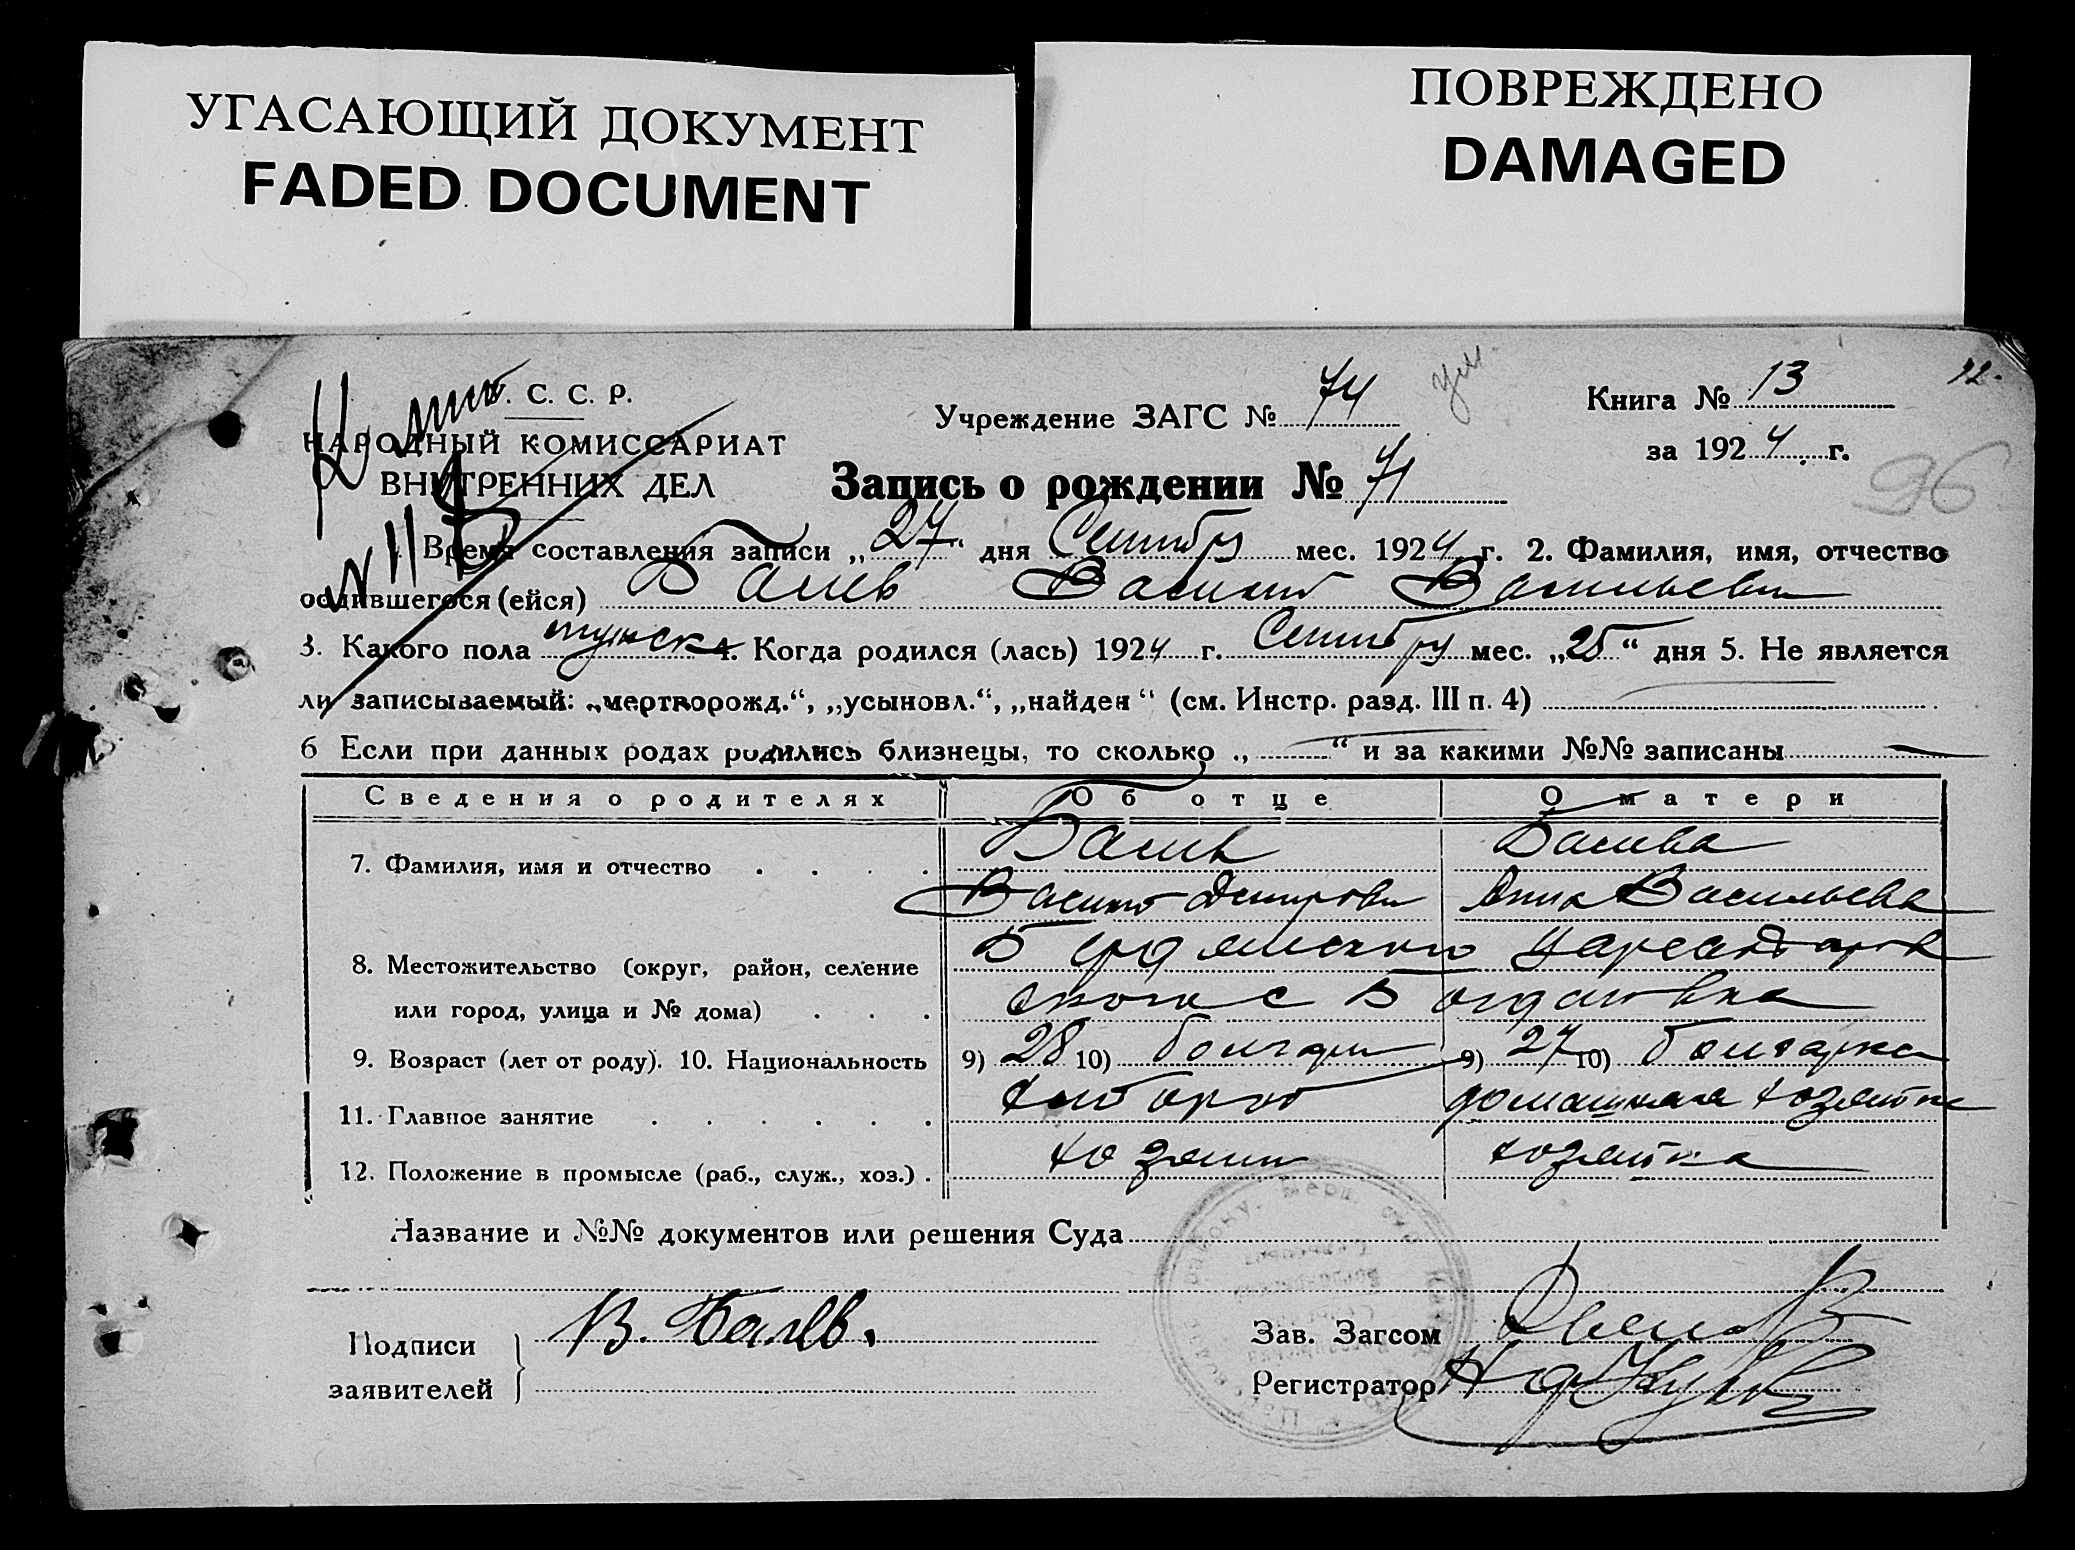 УГАСАЮЩИЙ ДОКУМЕНТ
FADED DOCUMENT
ПОВРЕЖДЕНО
DAMAGED
С. С. Р.
НАРОДНЫЙ КОМИССАРИАТ
ВНУТРЕННИХ ДЕЛ
Учреждение ЗАГС № 74
Книга № 13
за 1924 г.
96
Запись о рождении № 71
Время составления записи „27“ дня Сентября мес. 1924 г. 2. Фамилия, имя, отчество
родившегося (ейся) Балев Василий Васильевич
3. Какого пола мужск 4. Когда родился (лась) 1924 г. Сентября мес. „25“ дня 5. Не является
ли записываемый: „мертворожд.“, „усыновл.“, „найден“ (см. Инстр. разд. III п. 4)
6 Если при данных родах родились близнецы, то сколько „ “ и за какими №№ записаны
Сведения о родителях Об отце О матери
7. Фамилия, имя и отчество Балев Балева
Василий Дмитрович Анна Васильевна
8. Местожительство (округ, район, селение Бердянского Цареводаров
или город, улица и № дома) ского с Богдановка
9. Возраст (лет от роду). 10. Национальность 9) 28 10) болгарин 9) 27 10) болгарка
11. Главное занятие хлебороб домашняя хозяйка
12. Положение в промысле (раб., служ., хоз.) хозяин хозяйка
Название и №№ документов или решения Суда
Подписи В. Балев.
заявителей
Зав. Загсом
Регистратор